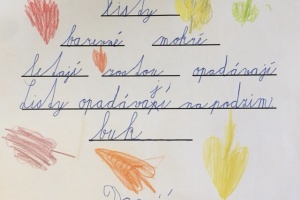 Listy
barevné mokré
letají rostou opadávají
Listy opadávají na podzim
buk